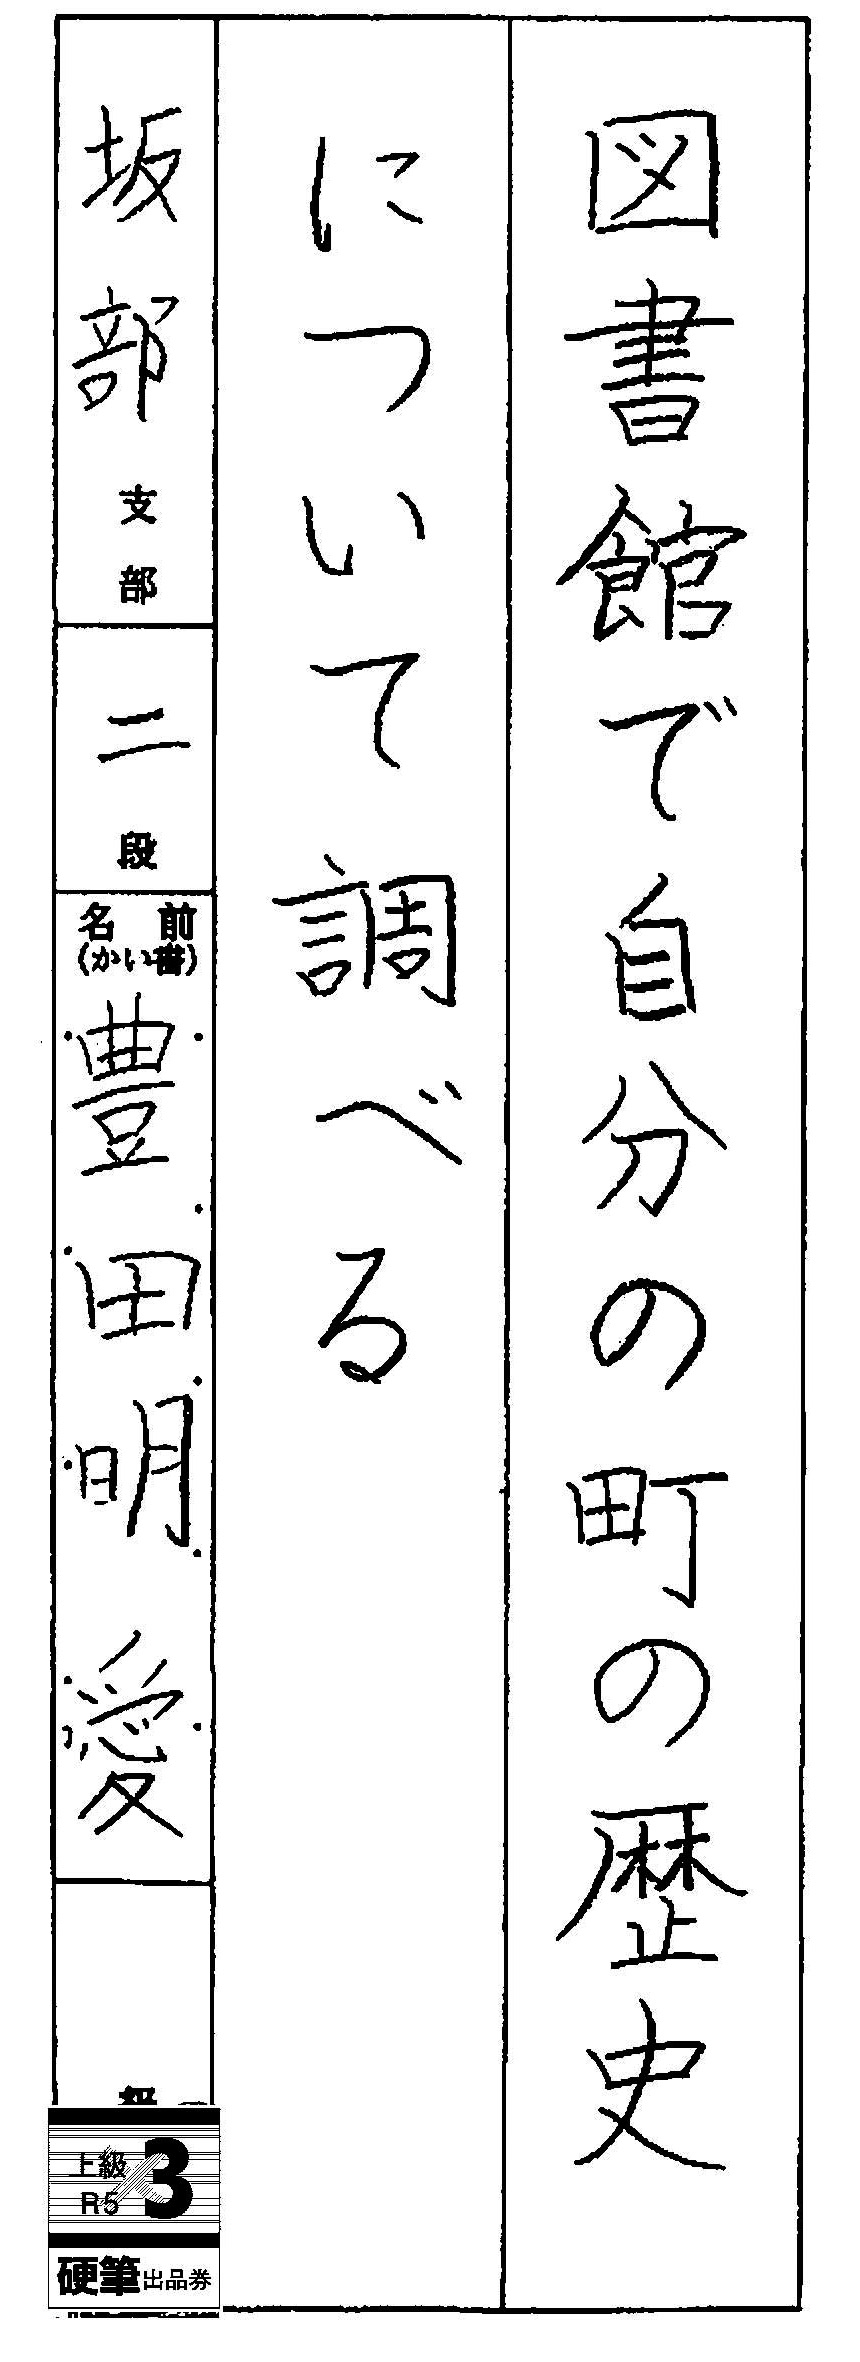 図書館で自分の町の歴史
について調べる
坂部支部
二段
名前
(かい書)
豊田明愛
上級
R5
3
硬筆出品券